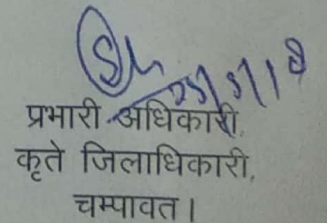 प्रभारी अधिकारी,
कृते जिलाधिकारी,
चम्पावत।